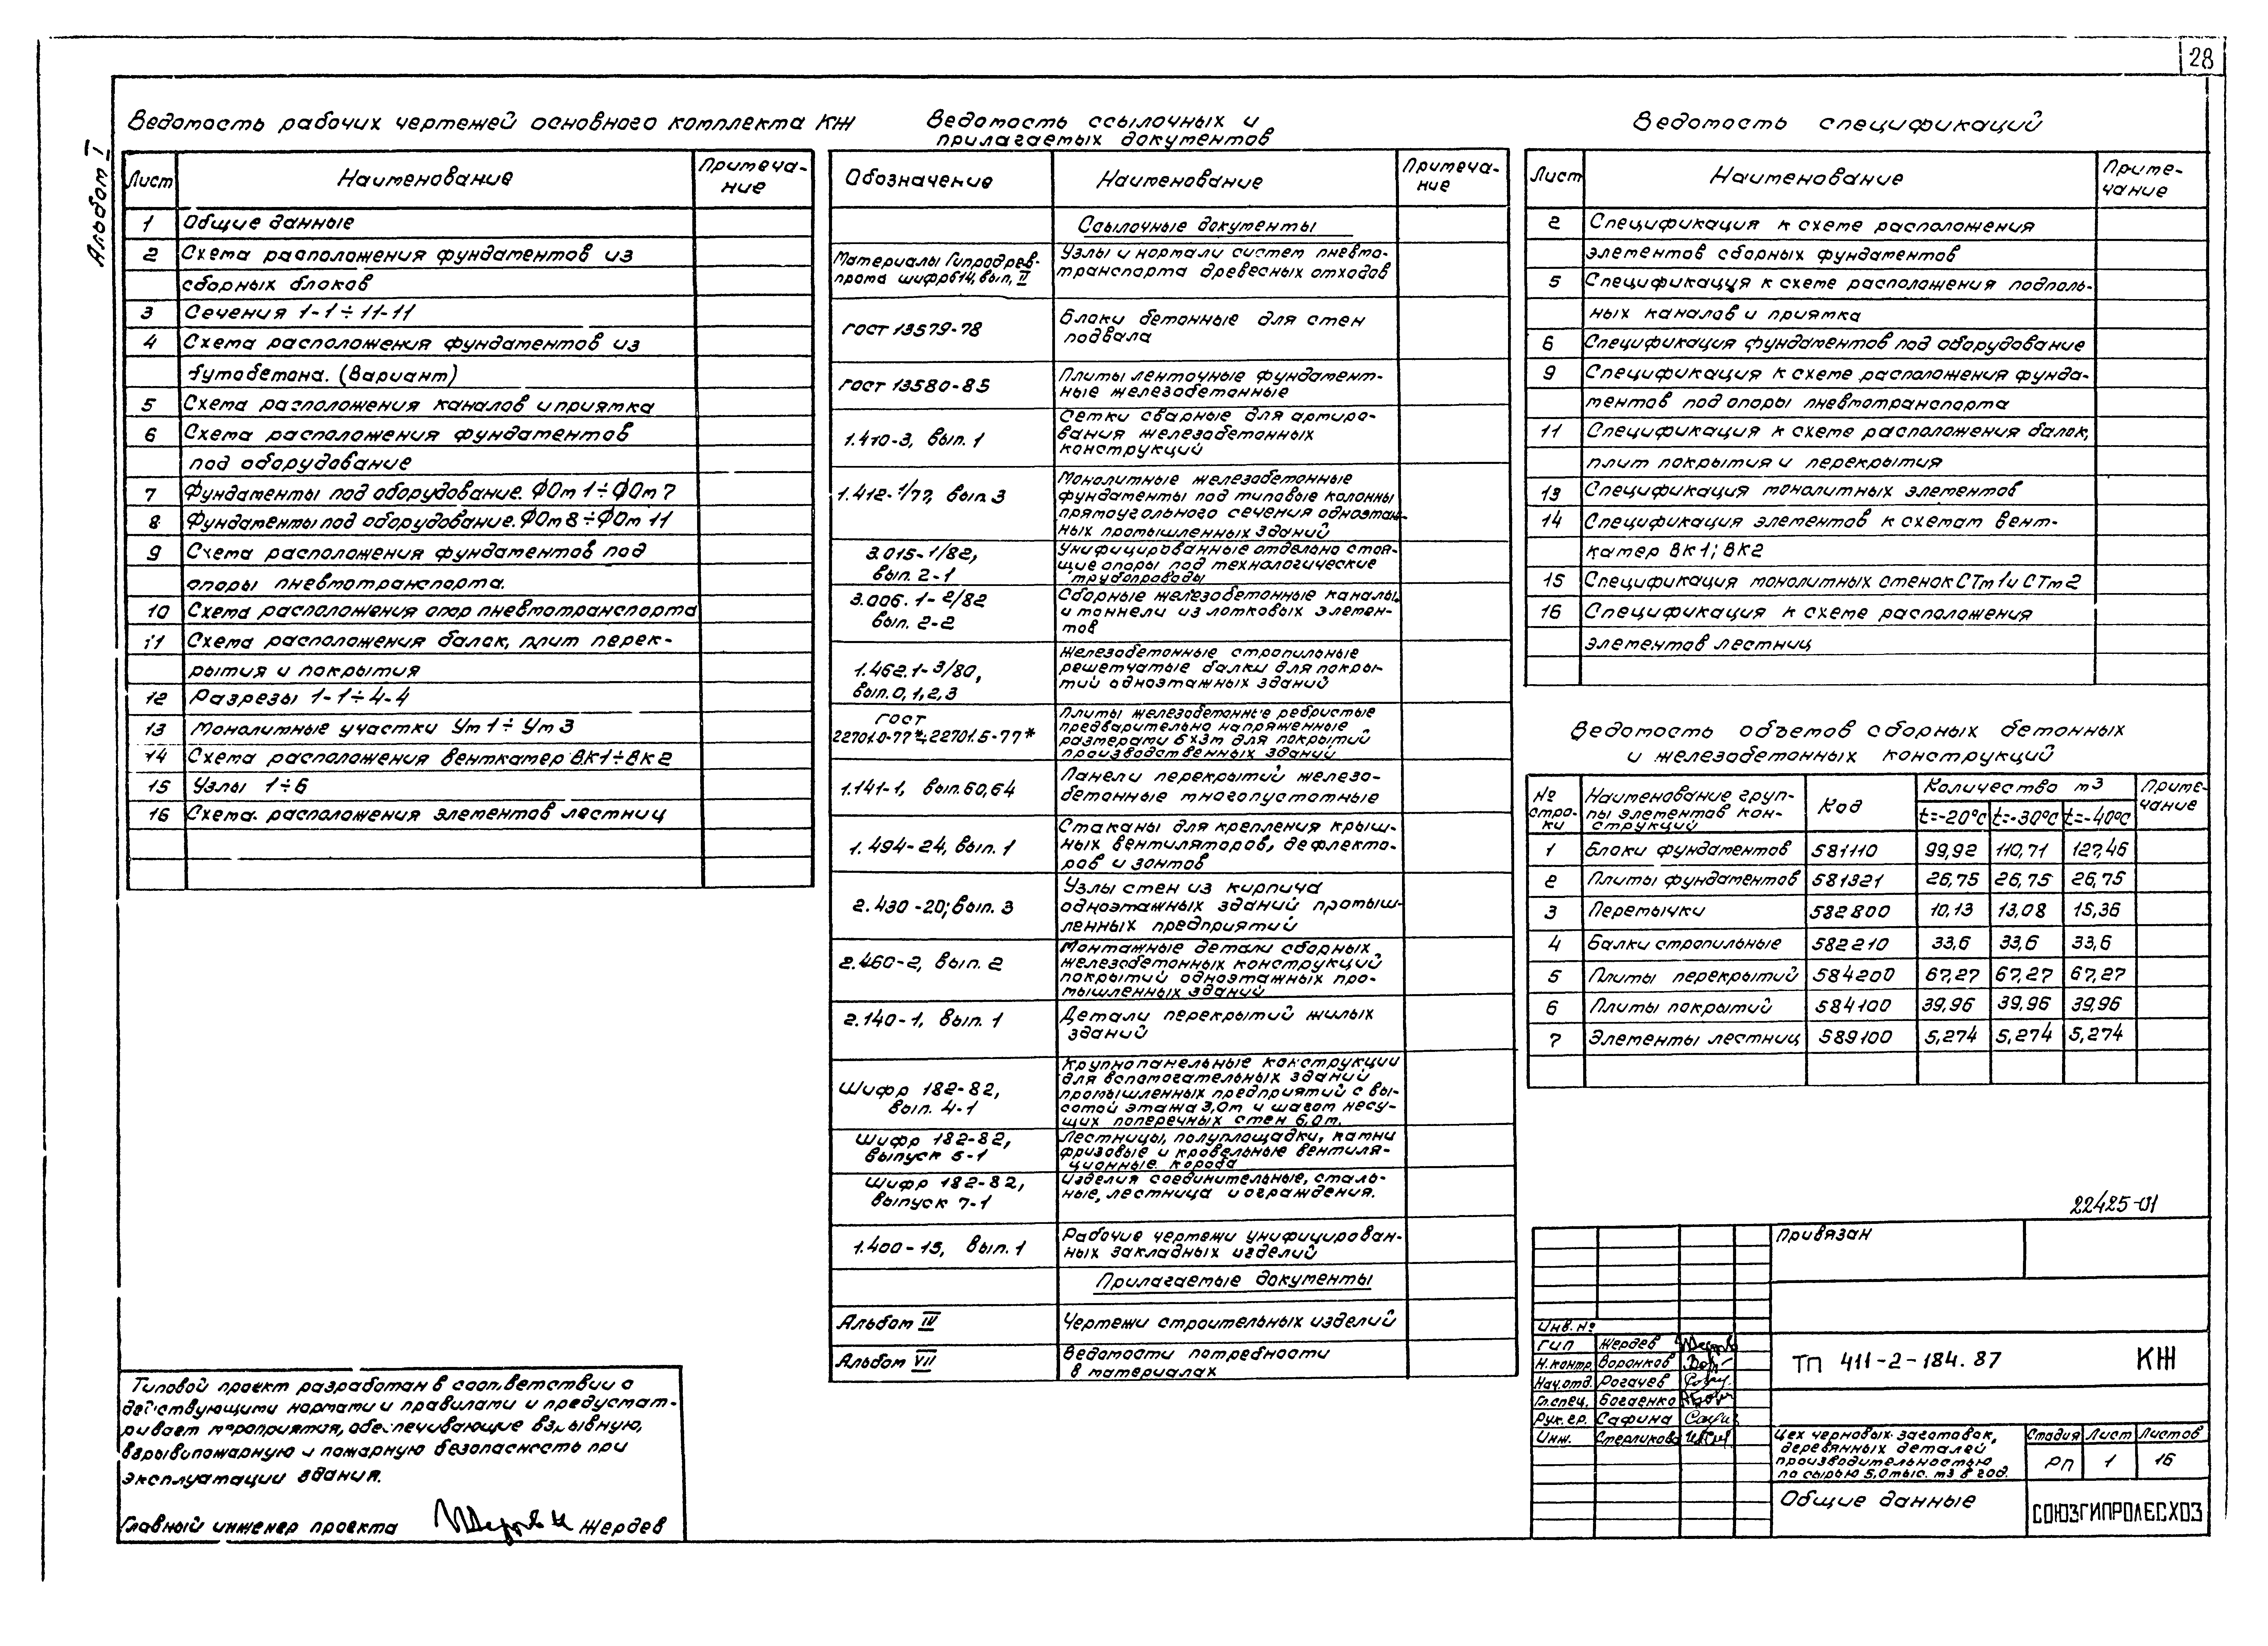 28
Альбом I
Ведомость рабочих чертежей основного комплекта КЖ
Лист Наименование Примеча-
ние
1 Общие данные
2 Схема расположения фундаментов из
сборных блоков
3 Сечения 1-1÷11-11
4 Схема расположения фундаментов из
бутобетона. (Вариант)
5 Схема расположения каналов и приямка
6 Схема расположения фундаментов
под оборудование
7 Фундаменты под оборудование. ФОм 1÷ФОм 7
8 Фундаменты под оборудование. ФОм 8÷ФОм 11
9 Схема расположения фундаментов под
опоры пневмотранспорта.
10 Схема расположения опор пневмотранспорта
11 Схема расположения балок, плит перек-
рытия и покрытия
12 Разрезы 1-1÷4-4
13 Монолитные участки Ум 1÷Ум 3
14 Схема расположения венткамер ВК1÷ВК2
15 Узлы 1÷6
16 Схема расположения элементов лестниц
Типовой проект разработан в соответствии с
действующими нормами и правилами и предусмат-
ривает мероприятия, обеспечивающие взрывную,
взрывопожарную и пожарную безопасность при
эксплуатации здания.
Главный инженер проекта Жердев
Ведомость ссылочных и
прилагаемых документов
Обозначение Наименование Примеча-
ние
Ссылочные документы
Материалы Гипродрев-
прома шифр 614, вып. II
Узлы и нормали систем пневмо-
транспорта древесных отходов
ГОСТ 13579-78
Блоки бетонные для стен
подвала
ГОСТ 13580-85
Плиты ленточные фундамент-
ные железобетонные
1.410-3, вып. 1
Сетки сварные для армиро-
вания железобетонных
конструкций
1.412-1/77, вып. 3
Монолитные железобетонные
фундаменты под типовые колонны
прямоугольного сечения одноэтаж-
ных промышленных зданий
3.015-1/82,
вып. 2-1
Унифицированные отдельно стоя-
щие опоры под технологические
трубопроводы
3.006.1-2/82
вып. 2-2
Сборные железобетонные каналы
и тоннели из лотковых элемен-
тов
1.462.1-3/80,
вып. 0, 1, 2, 3
Железобетонные стропильные
решетчатые балки для покры-
тий одноэтажных зданий
ГОСТ
22701.0-77*÷22701.5-77*
Плиты железобетонные ребристые
предварительно напряженные
размерами 6х3м для покрытий
производственных зданий
1.141-1, вып. 60, 64
Панели перекрытий железо-
бетонные многопустотные
1.494-24, вып. 1
Стаканы для крепления крыш-
ных вентиляторов, дефлекто-
ров и зонтов
2.430-20; вып. 3
Узлы стен из кирпича
одноэтажных зданий промыш-
ленных предприятий
2.460-2, вып. 2
Монтажные детали сборных
железобетонных конструкций
покрытий одноэтажных про-
мышленных зданий
2.140-1, вып. 1
Детали перекрытий жилых
зданий
Шифр 182-82,
вып. 4-1
Крупнопанельные конструкции
для вспомогательных зданий
промышленных предприятий с вы-
сотой этажа 3,0м и шагом несу-
щих поперечных стен 6,0м.
Шифр 182-82,
выпуск 5-1
Лестницы, полуплощадки, камни
фризовые и кровельные вентиля-
ционные короба
Шифр 182-82,
выпуск 7-1
Изделия соединительные, сталь-
ные, лестница и ограждения.
1.400-15, вып. 1
Рабочие чертежи унифицирован-
ных закладных изделий
Прилагаемые документы
Альбом IV Чертежи строительных изделий
Альбом VII
Ведомости потребности
в материалах
Ведомость спецификаций
Лист Наименование Приме-
чание
2 Спецификация к схеме расположения
элементов сборных фундаментов
5 Спецификация к схеме расположения подполь-
ных каналов и приямка
6 Спецификация фундаментов под оборудование
9 Спецификация к схеме расположения фунда-
ментов под опоры пневмотранспорта
11 Спецификация к схеме расположения балок,
плит покрытия и перекрытия
13 Спецификация монолитных элементов
14 Спецификация элементов к схемам вент-
камер ВК1; ВК2
15 Спецификация монолитных стенок СТм 1 и СТм 2
16 Спецификация к схеме расположения
элементов лестниц
Ведомость объемов сборных бетонных
и железобетонных конструкций
№ стро-
ки
Наименование груп-
пы элементов кон-
струкций
Код
Количество м3
t=-20°С t=-30°С t=-40°С
Приме-
чание
1 Блоки фундаментов 581110 99,92 110,71 127,46
2 Плиты фундаментов 581321 26,75 26,75 26,75
3 Перемычки 582800 10,13 13,08 15,36
4 Балки стропильные 582210 33,6 33,6 33,6
5 Плиты перекрытий 584200 67,27 67,27 67,27
6 Плиты покрытий 584100 39,96 39,96 39,96
7 Элементы лестниц 589100 5,274 5,274 5,274
22425-01
Привязан
Инв. №
ГИП Жердев
Н.контр. Воронков
Нач.отд. Рогачев
Гл.спец. Богаенко
Рук.гр. Сафина
Инж. Стерликова
ТП 411-2-184.87 КЖ
Цех черновых заготовок,
деревянных деталей
производительностью
по сырью 5,0 тыс. м3 в год.
Стадия Лист Листов
РП 1 16
Общие данные
СОЮЗГИПРОЛЕСХОЗ